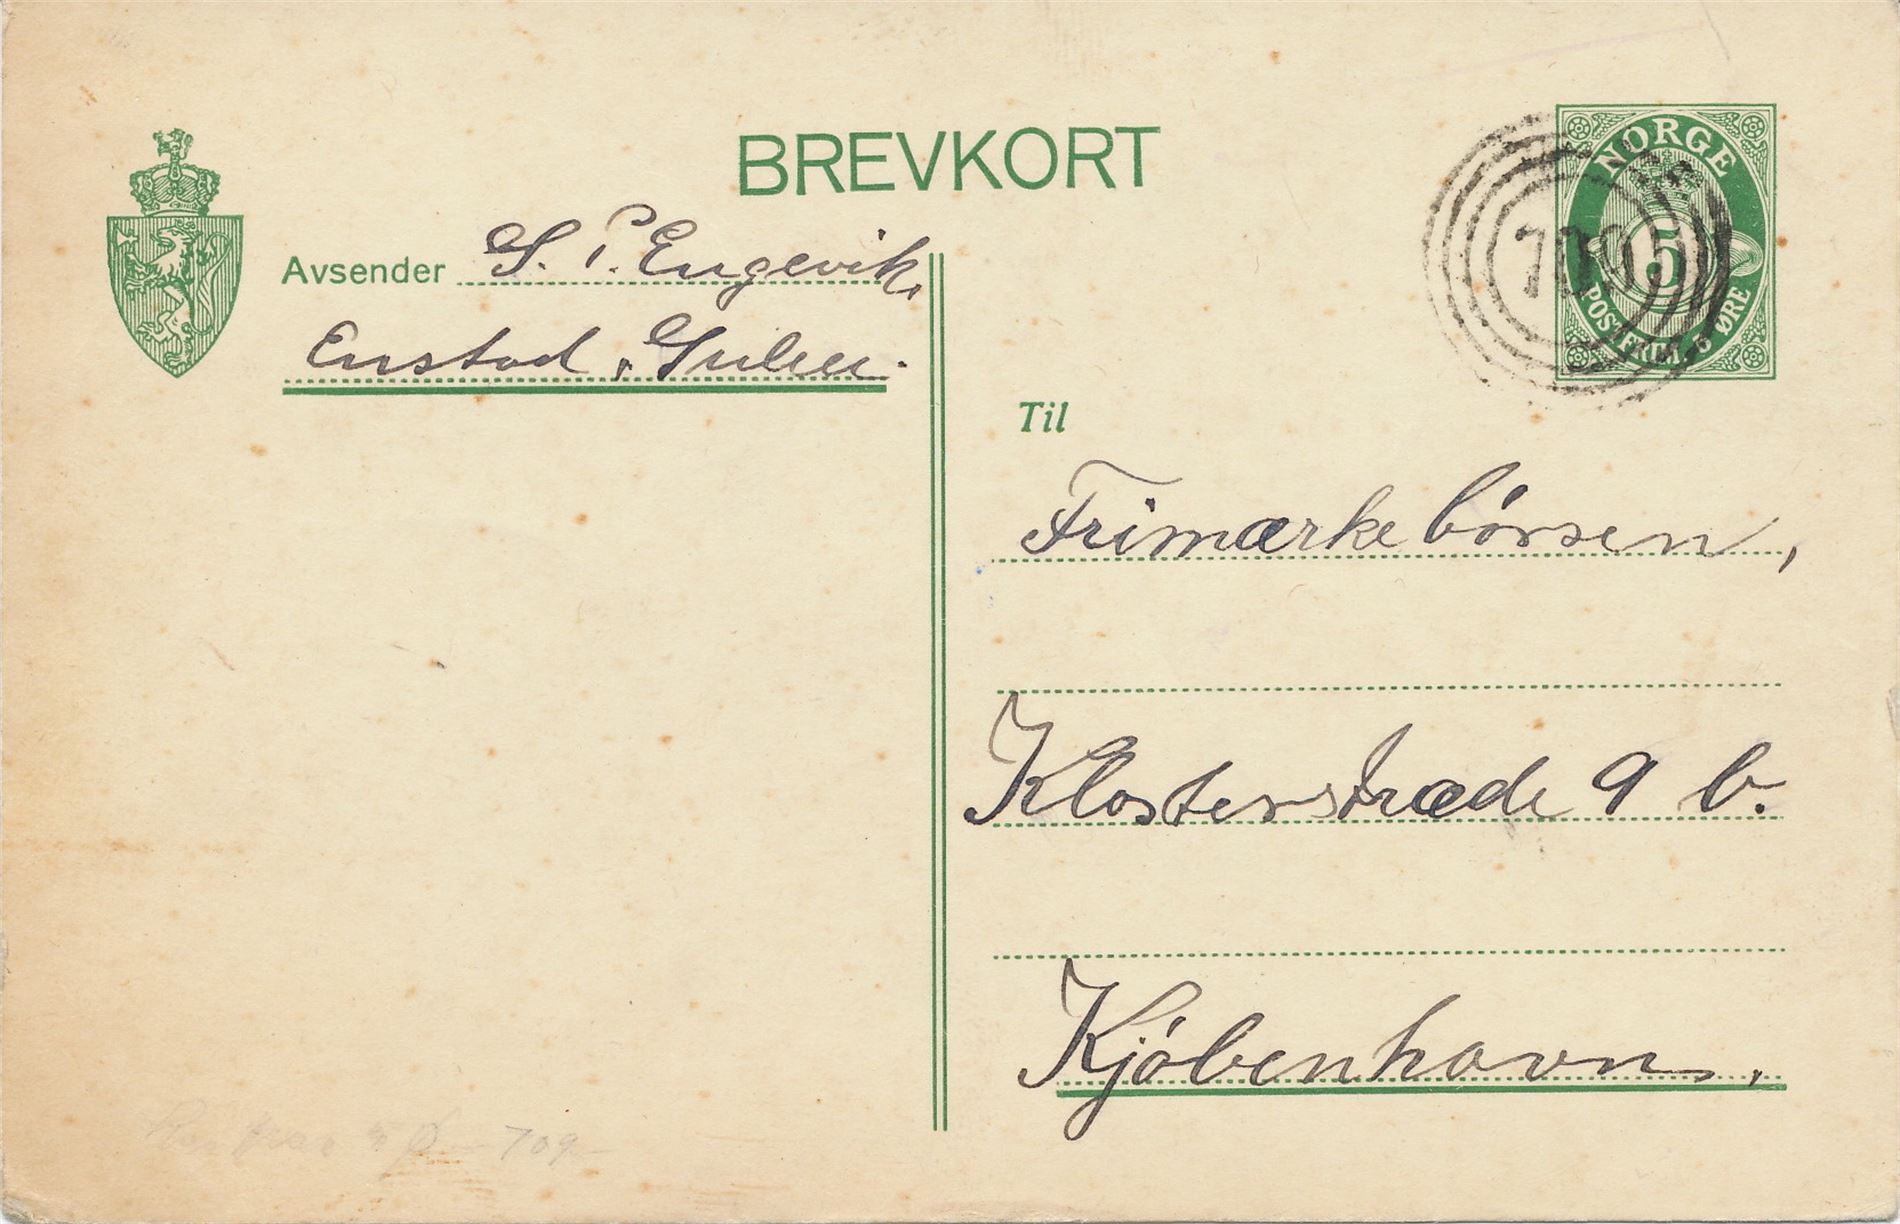 BREVKORT
NORGE
7095
5
POSTFRIM. 5 ØRE
Avsender S. P. Engevik,
Enstad, Gulen.
Til
Frimærkebörsen,
Klosterstræde 9 b.
Kjöbenhavn.
709